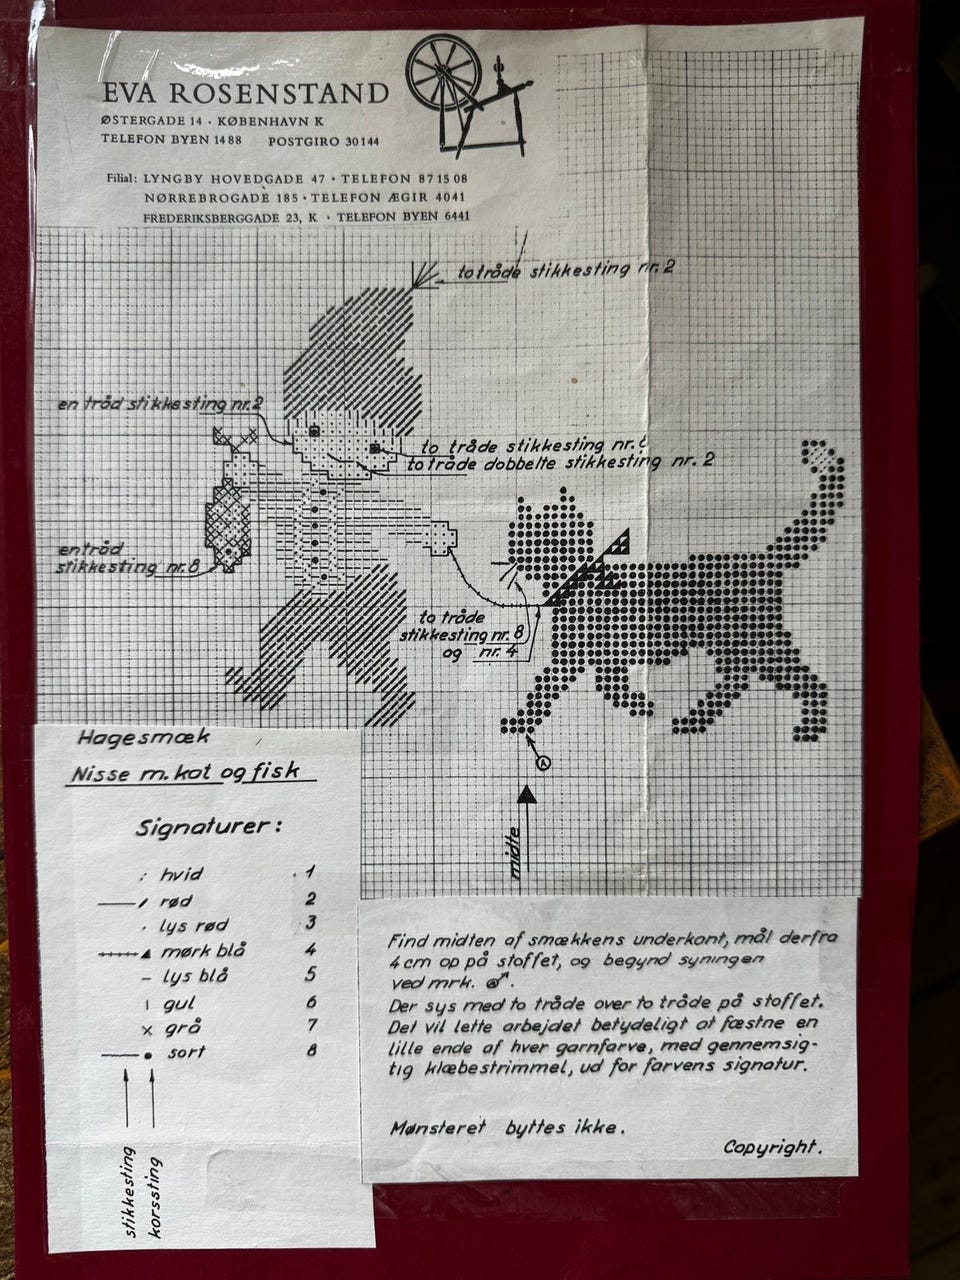 EVA ROSENSTAND
ØSTERGADE 14 · KØBENHAVN K
TELEFON BYEN 1488 POSTGIRO 30144
Filial: LYNGBY HOVEDGADE 47 · TELEFON 87 15 08
NØRREBROGADE 185 · TELEFON ÆGIR 4041
FREDERIKSBERGGADE 23, K · TELEFON BYEN 6441
to tråde stikkesting nr. 2
en tråd stikkesting nr. 2
to tråde stikkesting nr.
to tråde dobbelte stikkesting nr. 2
en tråd
stikkesting nr. 8
to tråde
stikkesting nr. 8
og nr. 4
A
midte
Hagesmæk
Nisse m. kat og fisk
Signaturer:
hvid 1
rød 2
lys rød 3
mørk blå 4
lys blå 5
gul 6
grå 7
sort 8
stikkesting
korssting
Find midten af smækkens underkant, mål derfra
4 cm op på stoffet, og begynd syningen
ved mrk.
Der sys med to tråde over to tråde på stoffet.
Det vil lette arbejdet betydeligt at fæstne en
lille ende af hver garnfarve, med gennemsig-
tig klæbestrimmel, ud for farvens signatur.
Mønsteret byttes ikke.
Copyright.